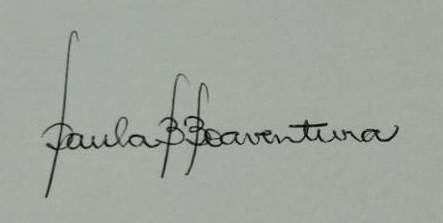 Paula B Boaventura